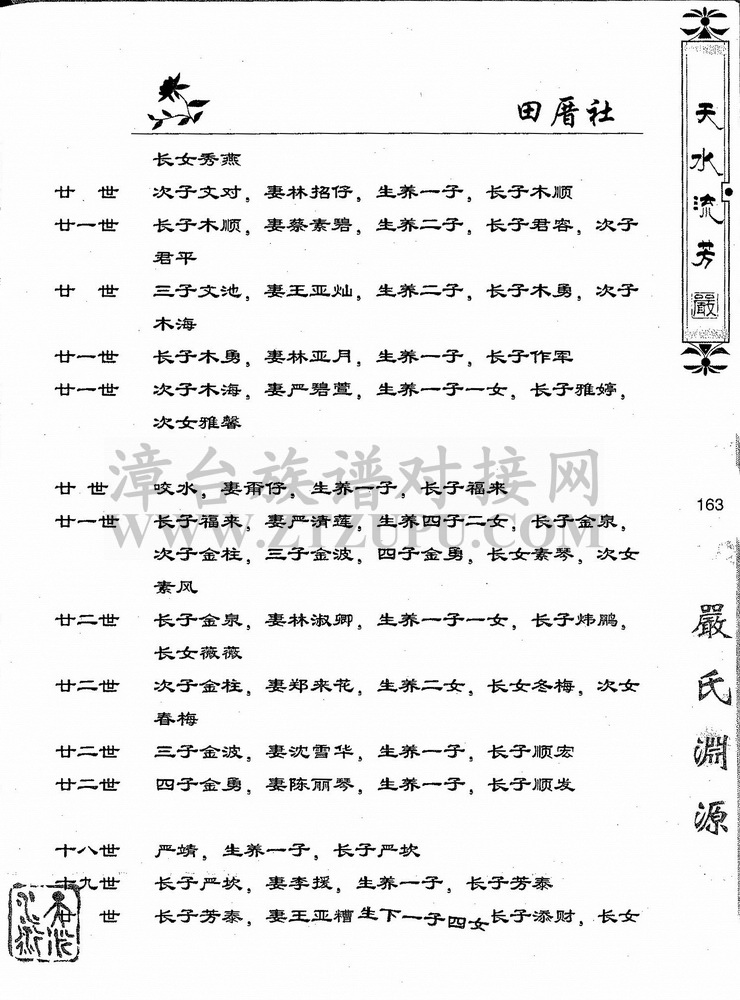 田厝社
长女秀燕
廿 世 次子文对，妻林招仔，生养一子，长子木顺
廿一世 长子木顺，妻蔡素碧，生养二子，长子君容，次子
君平
廿 世 三子文池，妻王亚灿，生养二子，长子木勇，次子
木海
廿一世 长子木勇，妻林亚月，生养一子，长子作军
廿一世 次子木海，妻严碧萱，生养一子一女，长子雅婷，
次女雅馨
廿 世 咬水，妻甭仔，生养一子，长子福来
廿一世 长子福来，妻严清莲，生养四子二女，长子金泉，
次子金柱，三子金波，四子金勇，长女素琴，次女
素风
廿二世 长子金泉，妻林淑卿，生养一子一女，长子炜鹏，
长女薇薇
廿二世 次子金柱，妻郑来花，生养二女，长女冬梅，次女
春梅
廿二世 三子金波，妻沈雪华，生养一子，长子顺宏
廿二世 四子金勇，妻陈丽琴，生养一子，长子顺发
十八世 严靖，生养一子，长子严坎
十九世 长子严坎，妻李援，生养一子，长子芳泰
世 长子芳泰，妻王亚糟生下一子四女长子添财，长女
天水流芳
嚴
163
嚴氏淵源
漳台族谱对接网
WWW.ZTZUPU.COM